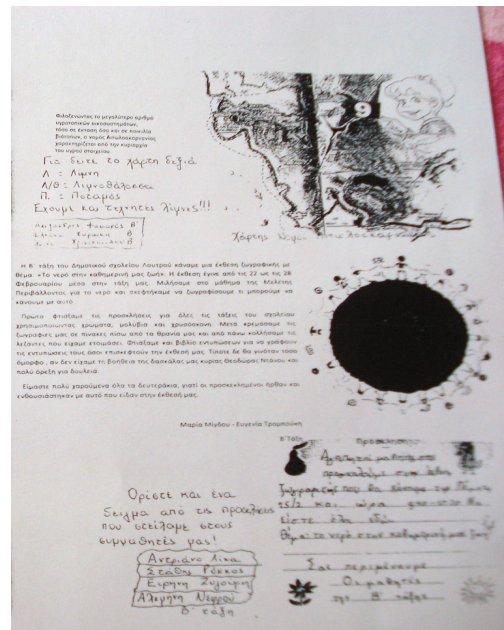 Φιλοξενώντας το μεγαλύτερο αριθμό
υγροτοπικών οικοσυστημάτων,
τόσο σε έκταση όσο και σε ποικιλία
βιότοπων, ο νομός Αιτωλοακαρνανίας
χαρακτηρίζεται από την κυριαρχία
του υγρού στοιχείου.
Για δείτε το χάρτη δεξιά
Λ : Λίμνη
Λ/Θ : Λιμνοθάλασσα
Π. : Ποταμός
Έχουμε και τεχνητές λίμνες!!!
9
Χάρτης
Η Β΄ τάξη του Δημοτικού σχολείου Λουτρού κάναμε μια έκθεση ζωγραφικής με
θέμα «Το νερό στην καθημερινή μας ζωή». Η έκθεση έγινε από τις 22 ως τις 28
Φεβρουαρίου μέσα στην τάξη μας. Μιλήσαμε στο μάθημα της Μελέτης
Περιβάλλοντος για το νερό και σκεφτήκαμε να ζωγραφίσουμε τι μπορούμε να
κάνουμε με αυτό.
Πρώτα φτιάξαμε τις προσκλήσεις για όλες τις τάξεις του σχολείου
χρησιμοποιώντας χρώματα, μολύβια και χρυσόσκονη. Μετά κρεμάσαμε τις
ζωγραφιές μας σε πίνακες πίσω από τα θρανία μας και από πάνω κολλήσαμε τις
λεζάντες που είχαμε ετοιμάσει. Φτιάξαμε και βιβλίο εντυπώσεων για να γράψουν
τις εντυπώσεις τους όσοι επισκεφτούν την έκθεσή μας. Τίποτα δε θα γινόταν τόσο
όμορφο , αν δεν είχαμε τη βοήθεια της δασκάλας μας κυρίας Θεοδώρας Ντάνου και
πολύ όρεξη για δουλειά.
Είμαστε πολύ χαρούμενα όλα τα δευτεράκια, γιατί οι προσκεκλημένοι ήρθαν και
ενθουσιάστηκαν με αυτό που είδαν στην έκθεσή μας.
Μαρία Μίγδου - Ευγενία Τραμπούκη
Β Τάξη
Πρόσκληση
25/2 και ώρα
Θέμα: το νερό στην καθημερινή μας ζωή
Σας περιμένουμε
Οι μαθητές
της Β΄ τάξης
Ορίστε και ένα
δείγμα από τις προσκλήσεις
που στείλαμε στους
συμμαθητές μας!
Αντριάνο Λίκα
Στάθης Γκέκος
Ειρήνη Ζυγούρη
Αλεμήνη Νέρρου
Β΄ τάξη